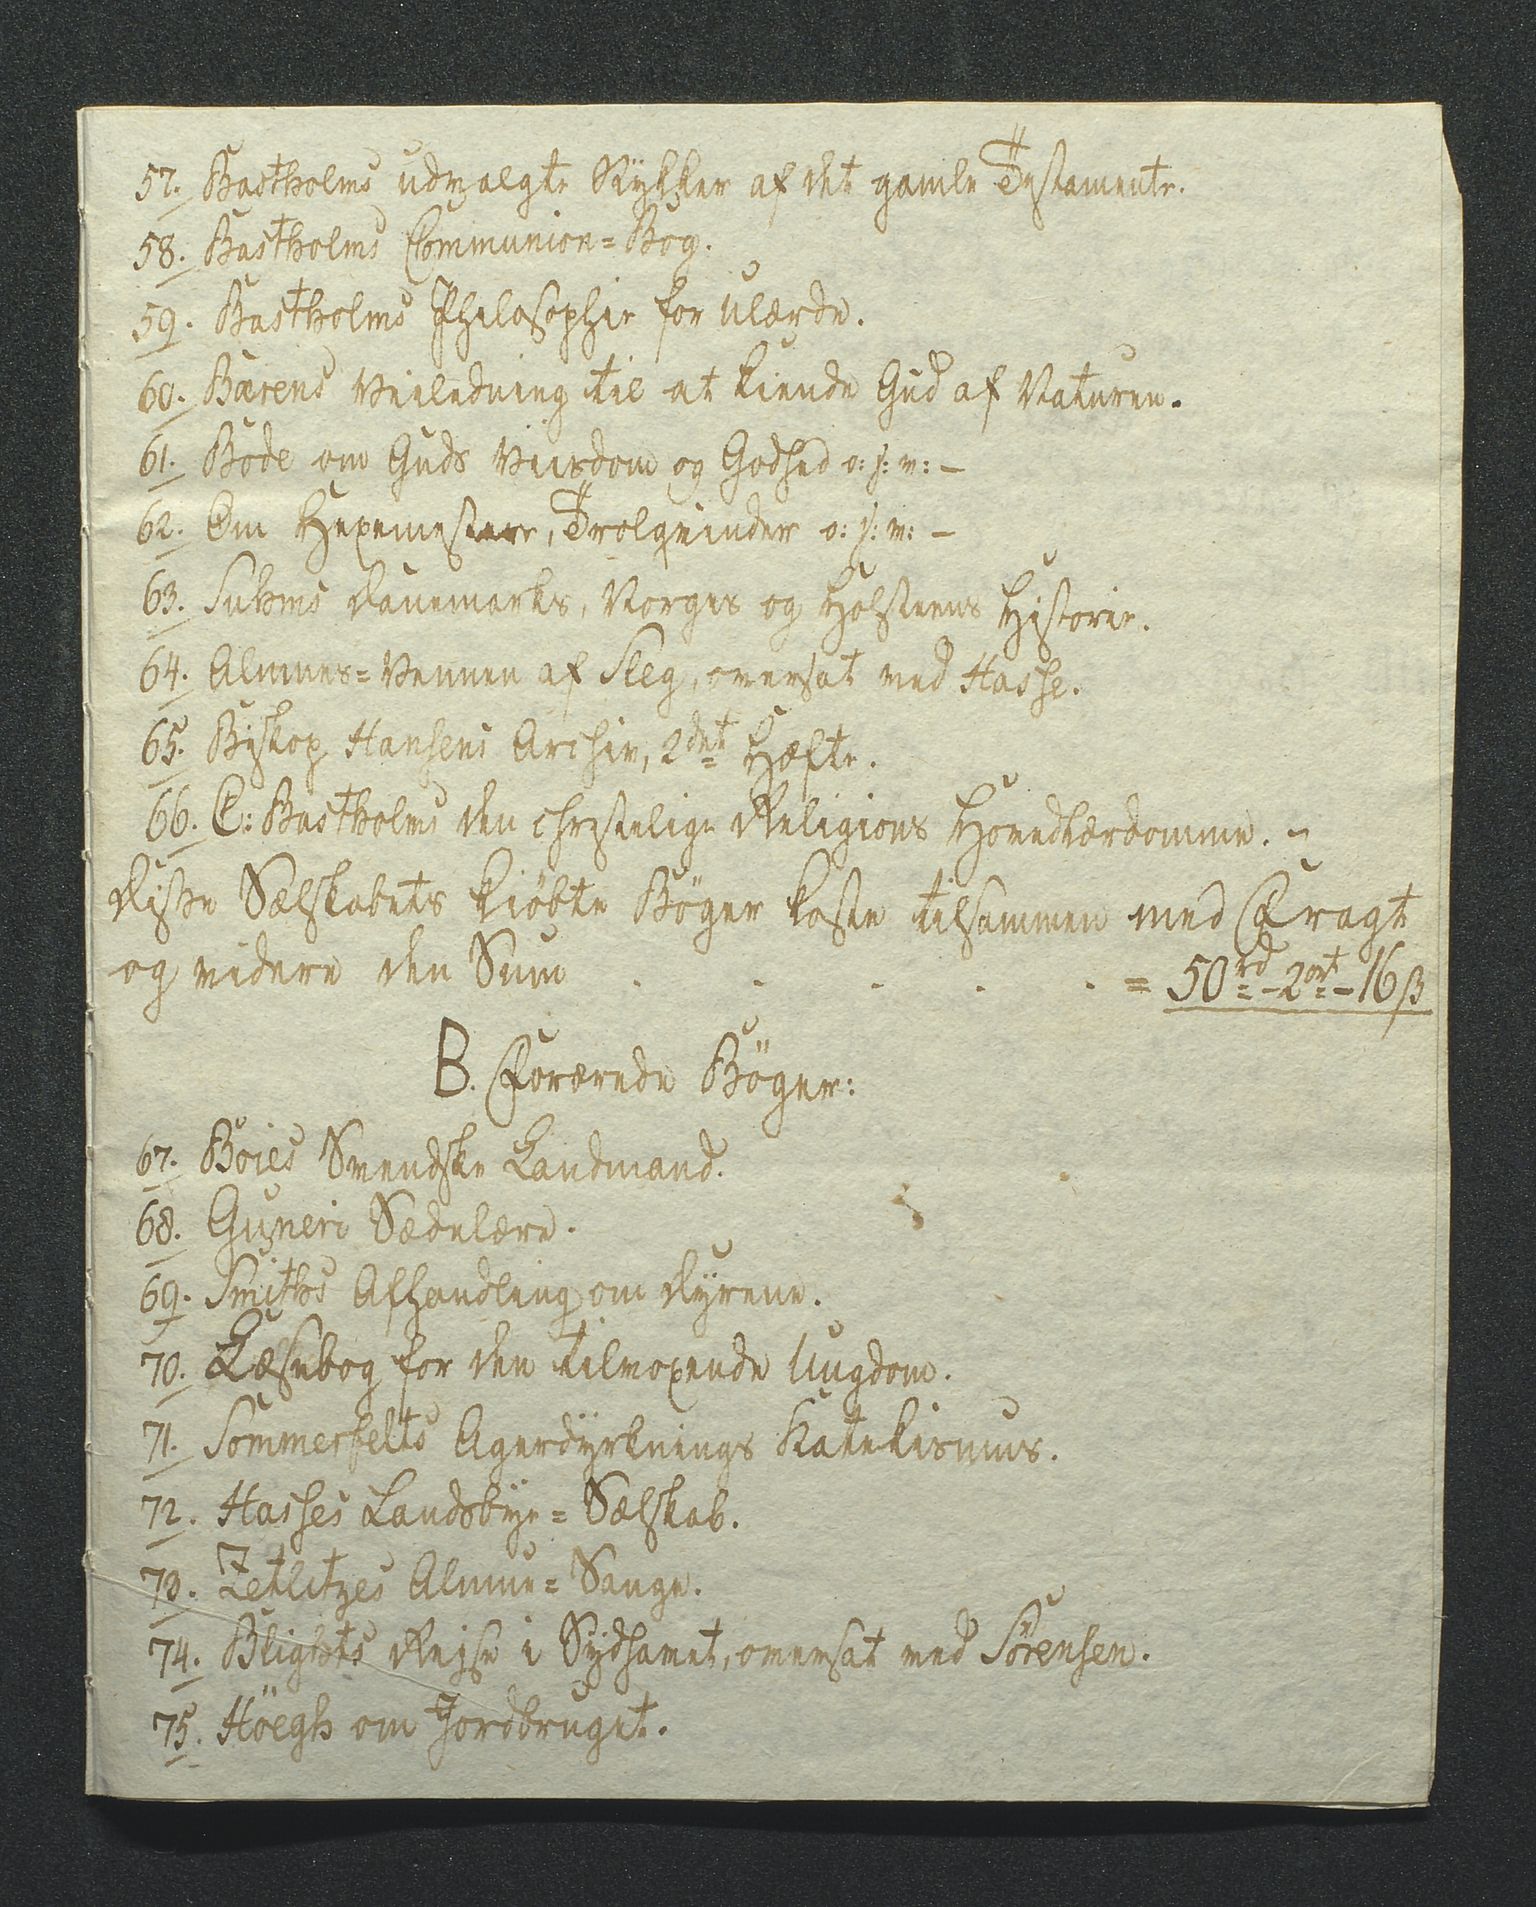 57. Bastholms udvalgte Stykker af det gamle Testamente.
58. Bastholms Communion=Bog.
59. Bastholms Philosophie for Ulærde.
60. Bærens Veiledning til at kiende Gud af Naturen.
61. Bode om Guds Viisdom og Godhed o: s: v: –
62. Om Hexemestere, Trolqvinder o: s: v: –
63. Suhms Danemarks, Norges og Holsteens Historie.
64. Almues=Vennen af Sleg, oversat ved Hasse.
65. Biskop Hansens Archiv, 2det Hæfte.
66. C: Bastholms den christelige Religions Hovedlærdomme. –
Disse Sælskabets kiöbte Böger koste tilsammen med Fragt
og videre den Sum . . . . . = 50rd – 2ort – 16 ß
B. Forærede Böger:
67. Boies Svendske Landmand.
68. Guneri Sædelære.
69. Smiths Afhandling om Dyrene.
70. Læsebog for den tilvoxende Ungdom.
71. Sommerfelts Agerdyrknings Katekismus.
72. Hasses Landsbye=Sælskab.
73. Zetlitzes Almue=Sange.
74. Blighs Rejse i Sydhavet, oversat ved Sörensen.
75. Höegh om Jordbruget.